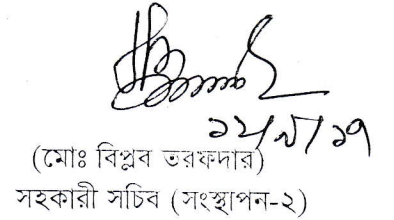 (মোঃ বিপ্লব তরফদার)
সহকারী সচিব (সংস্থাপন-২)